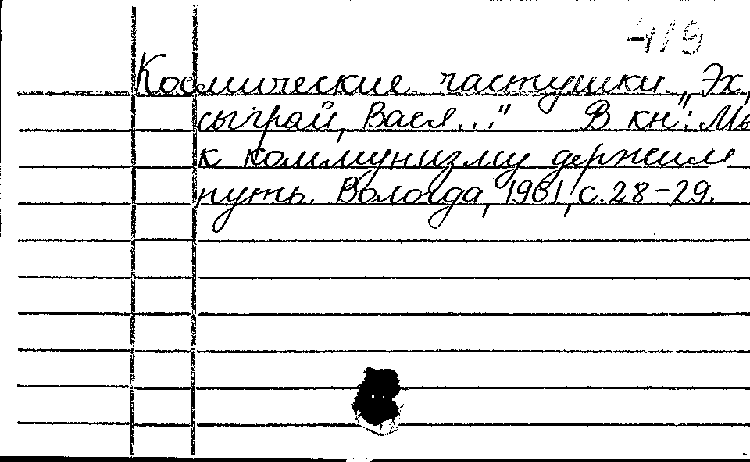 419
Космические частушки „Эх,
сыграй, Вася..." В кн.: Мы
к коммунизму держим
путь. Вологда, 1961, с. 28-29.